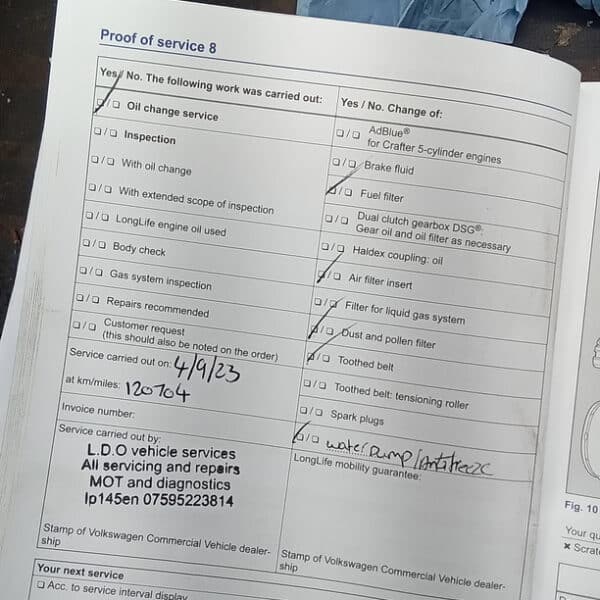 Proof of service 8
Yes / No. The following work was carried out:
❏ / ❏ Oil change service
❏ / ❏ Inspection
❏ / ❏ With oil change
❏ / ❏ With extended scope of inspection
❏ / ❏ LongLife engine oil used
❏ / ❏ Body check
❏ / ❏ Gas system inspection
❏ / ❏ Repairs recommended
❏ / ❏ Customer request
(this should also be noted on the order)
Service carried out on: 4/9/23
at km/miles: 120704
Invoice number:
Service carried out by:
L.D.O vehicle services
All servicing and repairs
MOT and diagnostics
Ip145en 07595223814
Stamp of Volkswagen Commercial Vehicle dealer-
ship
Yes / No. Change of:
❏ / ❏ AdBlue®
for Crafter 5-cylinder engines
❏ / ❏ Brake fluid
❏ / ❏ Fuel filter
❏ / ❏ Dual clutch gearbox DSG®:
Gear oil and oil filter as necessary
❏ / ❏ Haldex coupling: oil
❏ / ❏ Air filter insert
❏ / ❏ Filter for liquid gas system
❏ / ❏ Dust and pollen filter
❏ / ❏ Toothed belt
❏ / ❏ Toothed belt: tensioning roller
❏ / ❏ Spark plugs
❏ / ❏ water pump / Antifreeze
LongLife mobility guarantee:
Stamp of Volkswagen Commercial Vehicle dealer-
ship
Your next service
❏ Acc. to service interval display
Fig. 10
Your qu
✖ Scrat